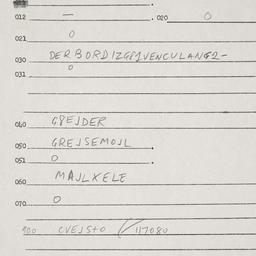 012 — . 020 0
021 0
030 DERBORDIZGP1VENCULANG2-
031 0
040 GREJDER
050 GREJSEMOJL .
051 0 .
060 MAJLKELE
070 0
900 CVEJSTO / 117080